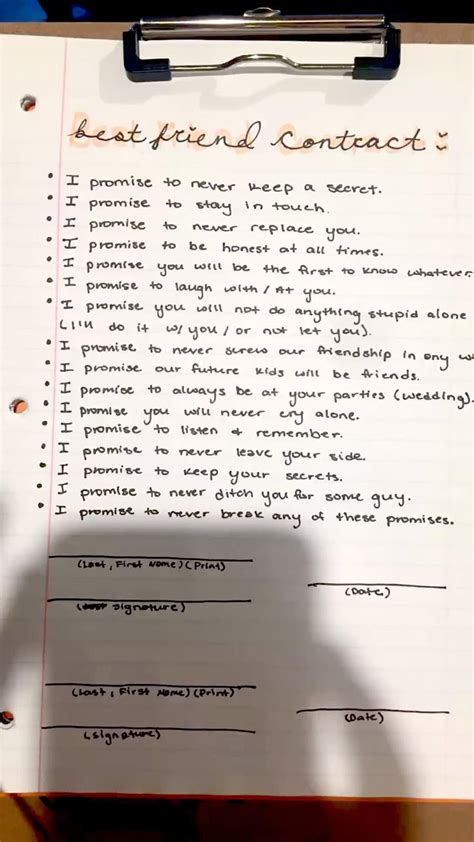 best friend contract :
• I promise to never keep a secret.
• I promise to stay in touch.
• I promise to never replace you.
• I promise to be honest at all times.
• I promise you will be the first to know whatever.
• I promise to laugh with / At you.
• I promise you will not do anything stupid alone
(I'll do it w/ you / or not let you).
• I promise to never screw our friendship in any
• I promise our future kids will be friends.
• I promise to always be at your parties (wedding).
• I promise you will never cry alone.
• I promise to listen & remember.
• I promise to never leave your side.
• I promise to keep your secrets.
• I promise to never ditch you for some guy.
• I promise to never break any of these promises.
(Last, First Name) (Print)
(Date)
(signature)
(Last, First Name) (Print)
(Date)
(signature)